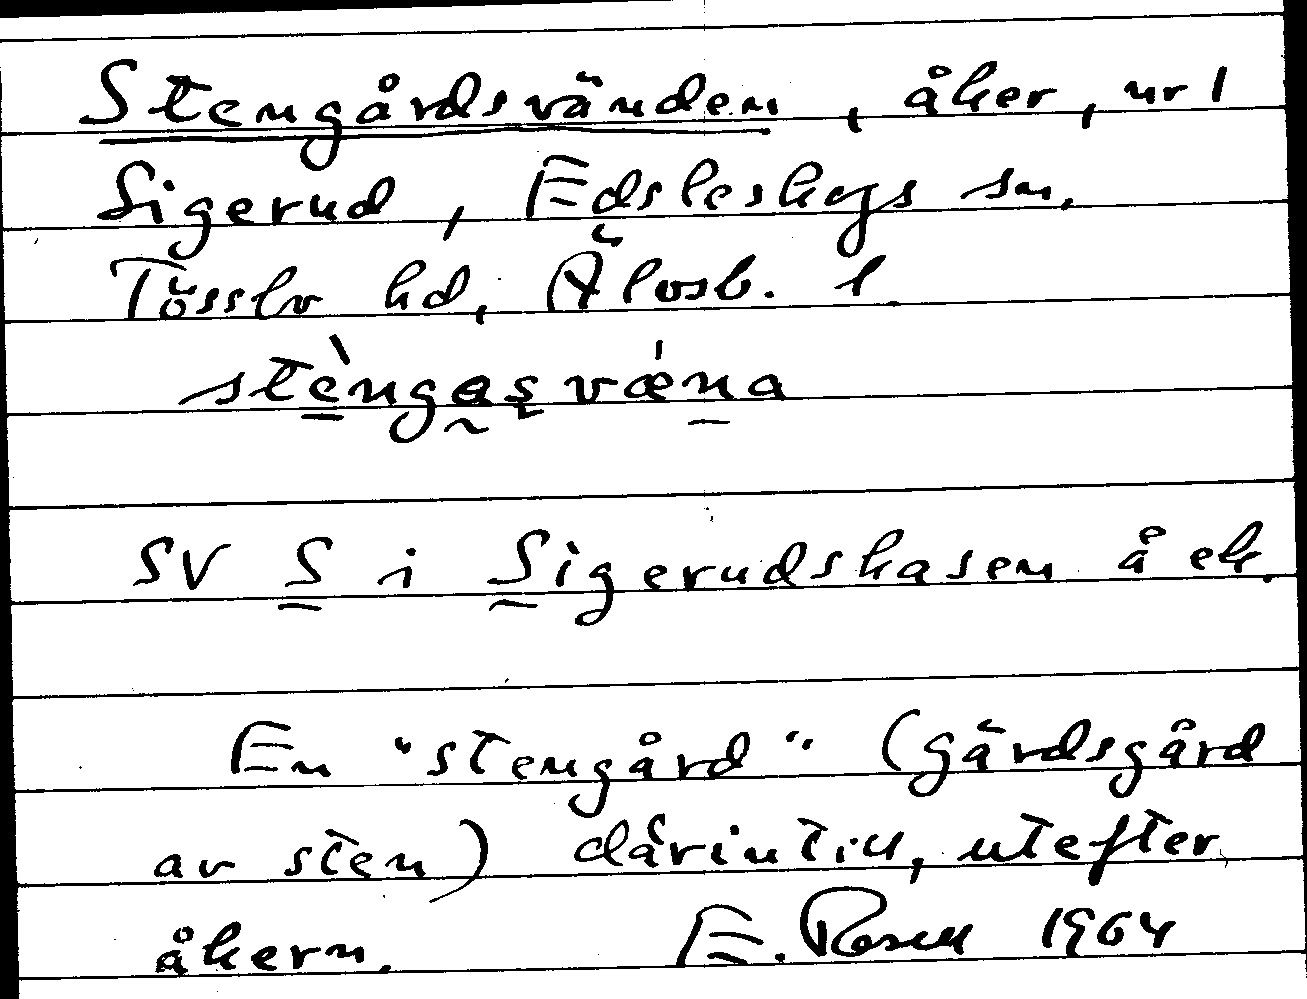 Stengårdsvänden, åker, nr 1
Sigerud, Edsleskogs sn,
Tössbo hd, Älvsb. l.
stèngas vǽna
SV S i Sigerudskasen å ek.
En "stengård" (gärdsgård
av sten) därintill, utefter
åkern. E. Rosell 1964